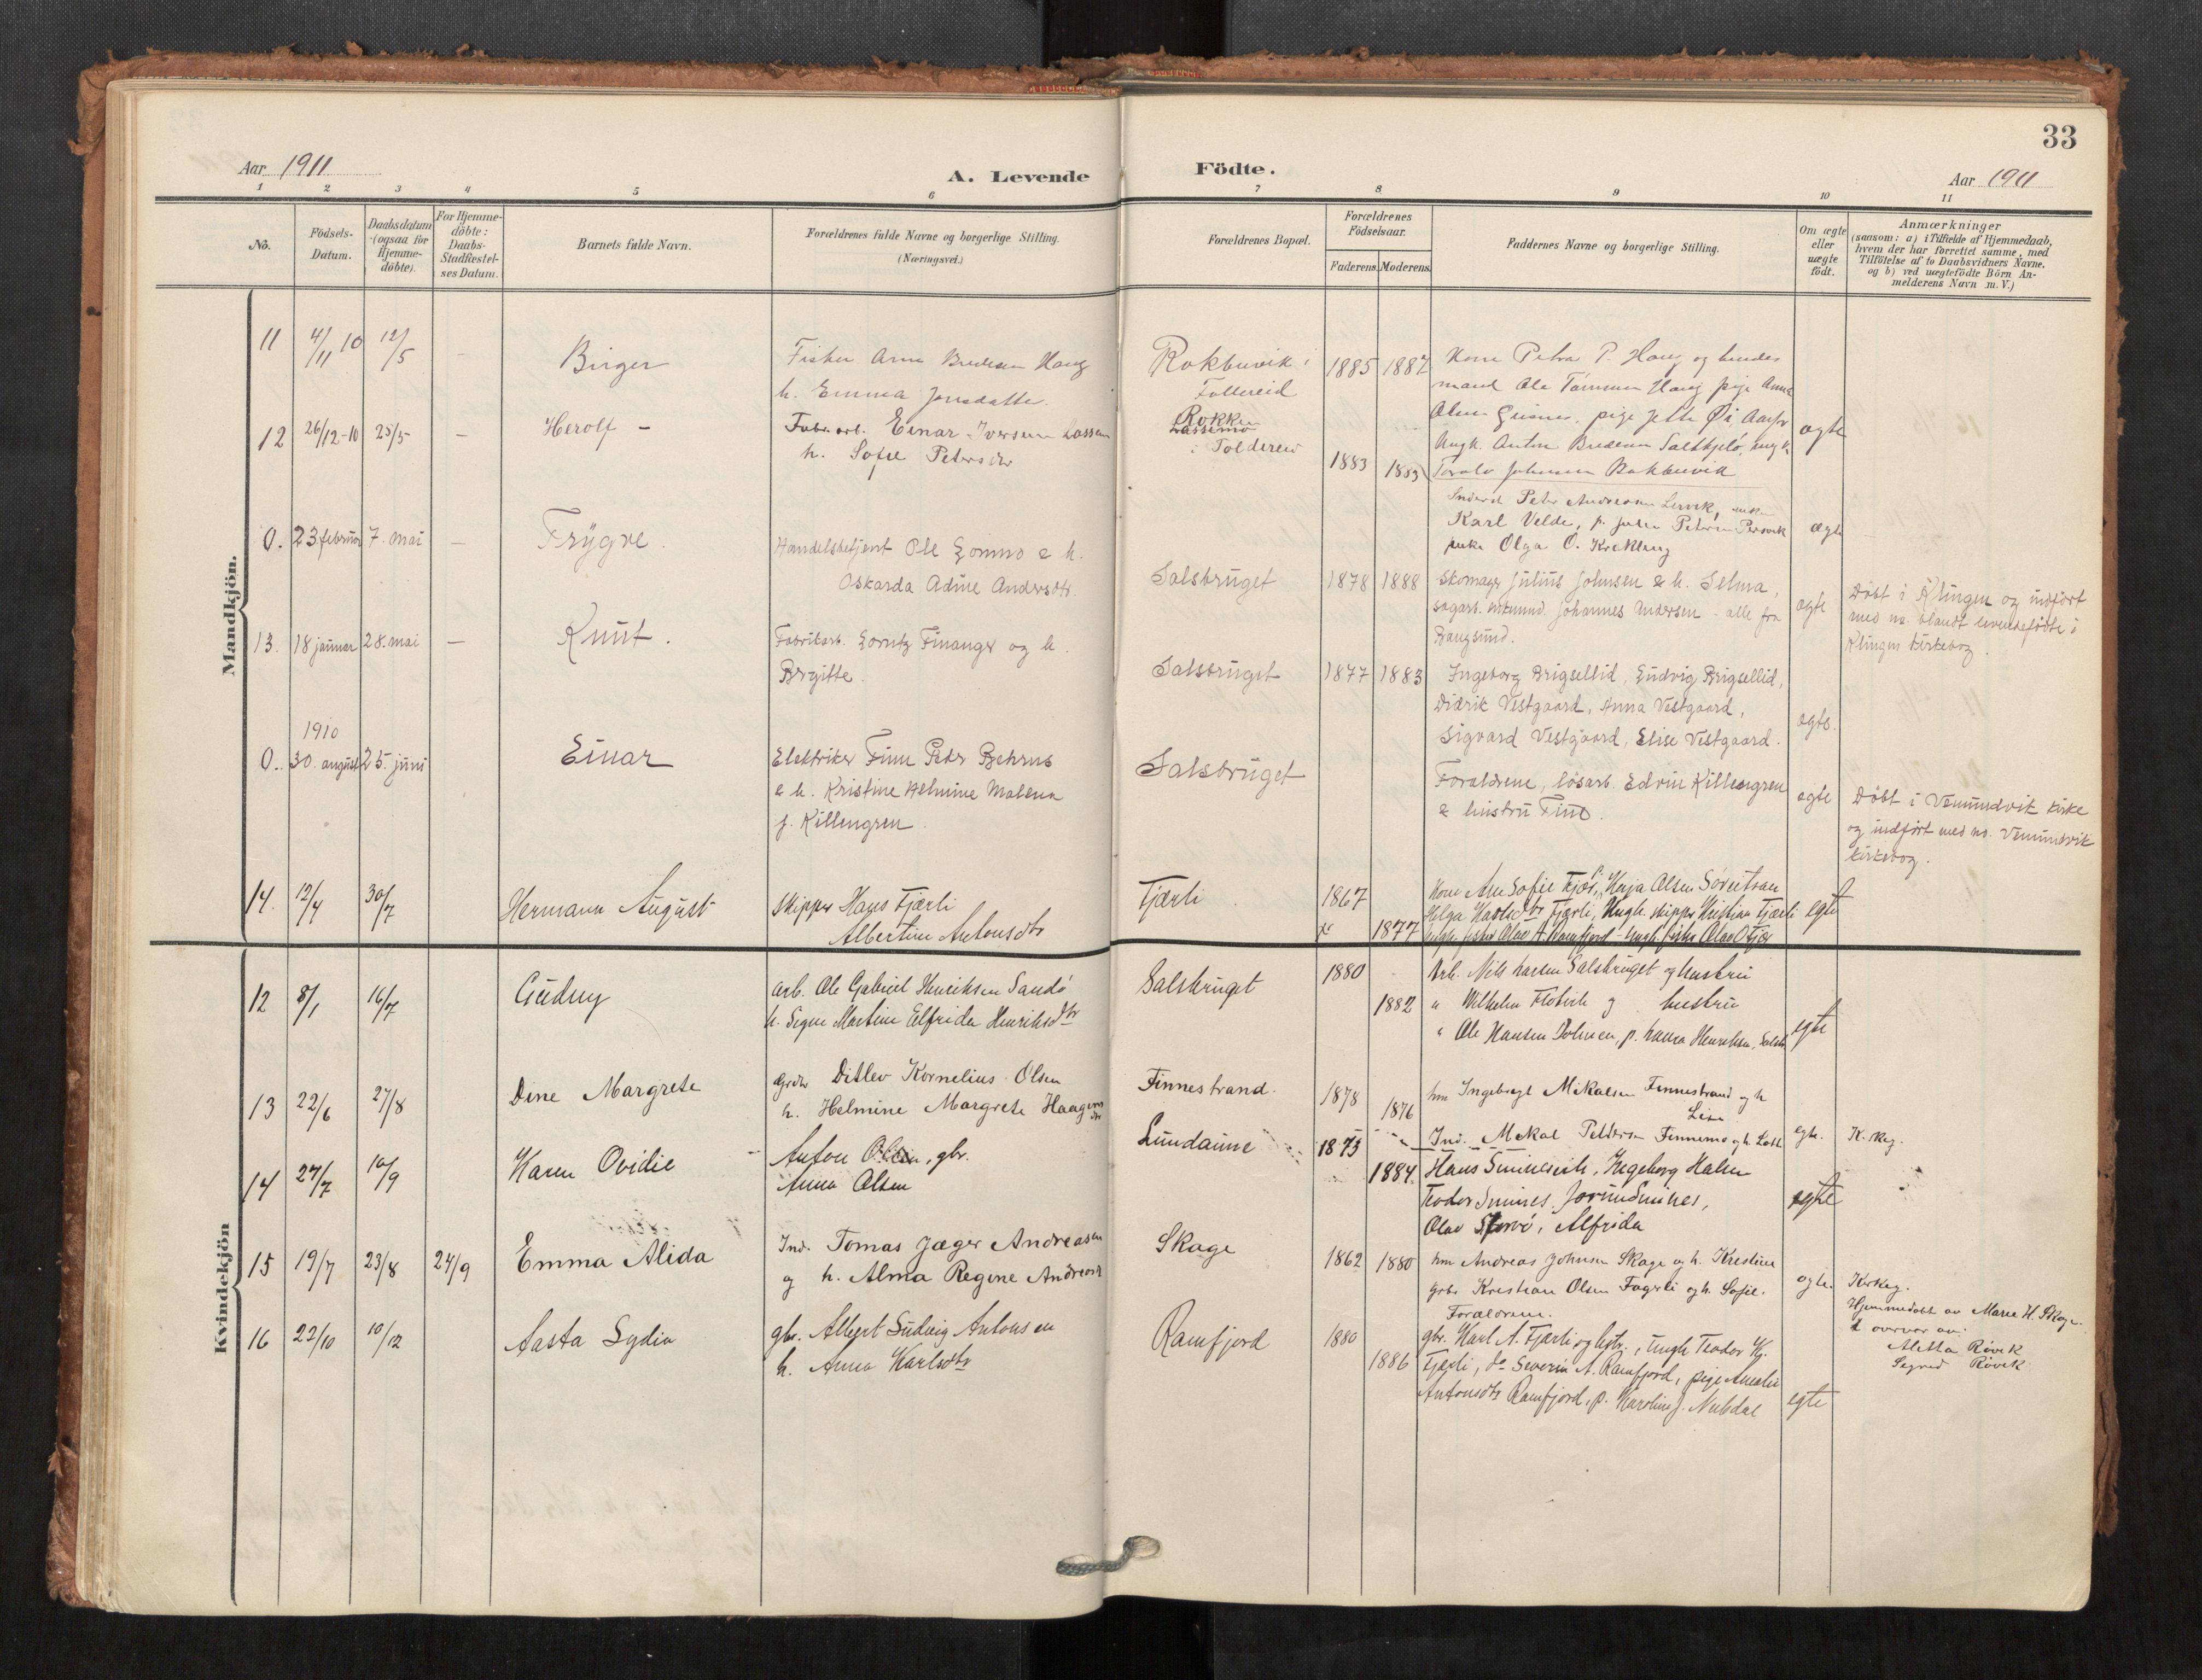 33
Aar 1911
A. Levende
Födte.
Aar 1911
1 2 3 4 5 6 7 8 9 10 11
No.
Födsels-
Datum.
Daabsdatum
(ogsaa for
Hjemme-
döbte).
For Hjemme-
döbte:
Daabs-
Stadfæstel-
ses Datum.
Barnets fulde Navn.
Forældrenes fulde Navne og borgerlige Stilling.
(Næringsvei.)
Forældrenes Bopæl.
Forældrenes
Födselsaar.
Faderens. Moderens.
Faddernes Navne og borgerlige Stilling.
Om ægte
eller
uægte
födt.
Anmærkninger
(saasom: a) i Tilfælde af Hjemmedaab,
hvem der har forrettet samme, med
Tilföielse af to Daabsvidners Navne,
og b) ved uægtefödte Börn An-
melderens Navn m. V.)
Mandkjön.
11 4/11 10 12/5 Birger
Fisker Arne Bredesen Haug
h. Emma Jonsdatter
Rokbuvik i
Foldereid
1885 1887
Kone Petra P. Haug og hendes
mand Ole Haug pige Anna
Olsen pige
ungk. Anton Bredesen
Johnsen Rokbuvik
12 26/12-10 25/5 – Herolf –
Fabr. arb. Einar Iversen Lassemo
h. Sofie Petersdtr
Rokken
Lassemo
i Foldereid
1883 1883
ægte
Peter Andreasen
Karl Velde, p.
Olga O.
ægte
0. 23 februar 7. mai – Trygve.
Handelsbetjent Ole Gomno & h.
Oskarda Adine Andersdtr.
Salsbruget 1878 1888
Skomager Julius Johnsen & h. Selma,
sagarb. Johannes Andersen – alle fra
Bangsund.
ægte
Döbt i Klingen og indfört
med no. blandt levendefödte i
Klingen kirkebog.
13. 18 januar 28. mai – Knut.
Fabrikarb. Lorntz Finanger og h.
Birgitte.
Salsbruget 1877 1883
Ingeborg Brigsellid, Ludvig Brigsellid,
Didrik Vestgaard, Anna Vestgaard,
Sigvard Vestgaard, Elise Vestgaard.
ægte.
1910
0. 30. august 25. juni Einar
Elektriker Finn Peter Behrns
& h. Kristine Helmine Malena
f. Killengren.
Salsbruget
Forældrene, lösarb. Edvin Killengren
& hustru Tine.
ægte
Döbt i Vemundvik kirke
og indfört med no. Vemundvik
kirkebog.
14. 12/4 30/7 Hermann August
Skipper Hans Fjærli
Albertine Antonsdtr
Fjærli 1867
1877
Kone Ane Sofie Fjær, Olsen
Helga Fjærli, Ungk. skipper Kristian Fjærli
ungk. fisker Olav A. Ramfjord – ungk. fisker Olav O Fjær
egte
Kvindekjön
12 8/1 16/7 Gudny
arb. Ole Gabriel Henriksen Sandö
h. Signe Martine Elfrida Henriksdtr
Salsbruget 1880
1882
Arb. Nils Larsen Salsbruget og hustru
" Vilhelm og hustru
" Ole Hansen Dolmen, p. Laura Henriksen, Salsbr
egte
13 22/6 27/8 Dine Margrete
Grdbr Ditlev Kornelius Olsen
h. Helmine Margrete Haagensdtr
Finnestrand. 1878
1876
hm Ingebregt Mikalsen Finnestrand og h
Lina
Ind. Mekal Pedersen Finnemo og h.
egte. K. keg.
14 27/7 10/9 Karen Ovidie
Anton Olsen, gbr.
Anna Olsen
Lundaune 1875
1884.
Hans Smines, Ingeborg Halsen
Teodor Smines, Jorun Smines,
Olav, Alfrida
egte
15 19/7 23/8 24/9 Emma Alida
Ind. Tomas Jæger Andreasen
og h. Alma Regine Andreasdtr
Skage 1862 1880
hm Andreas Johnsen Skage og h. Kristine
grbr. Kristian Olsen Fagerli og h. Sofie.
Forældrene.
egte. Kirkeg.
Hjemmedöbt av Marie H. Skage
i overvær av:
Aletta Røvik
Sigrid Røvik
16 22/10 10/12 Aasta Lydia
gbr. Albert Ludvig Antonsen
h. Anna Karlsdtr
Ramfjord 1880
1886
gbr. Karl A. Fjærli og hstr., ungk Teodor K.
Fjærli, do Severin A. Ramfjord, pige Amalie
Antonsdtr Ramfjord, p. Karoline J.
egte